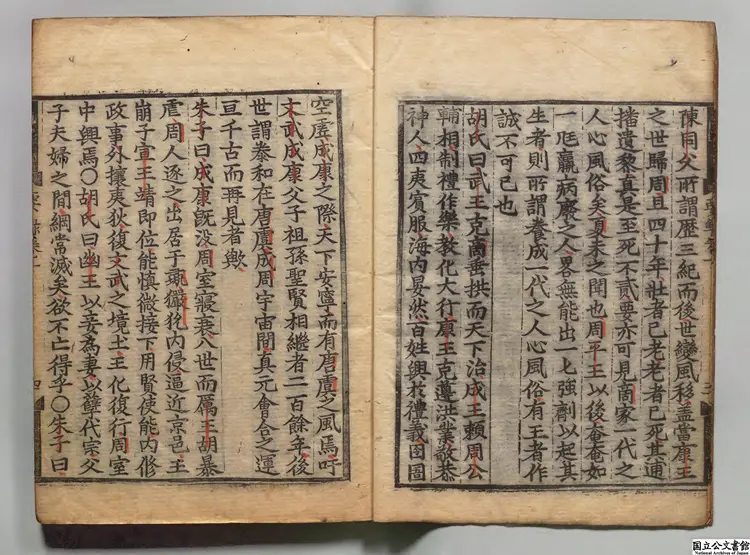 陳同父所謂歷三紀而後世變風移盖當康王
之世歸周且四十年壯者已老老者已死其逋
播遺黎真是至死不貳要亦可見商家一代之
人心風俗矣夏末之聞也周平王以後奄奄如
一尫羸病廢之人畧無能出一匕強劑以起其
生者則所謂養成一代之人心風俗有王者作
誠不可已也
胡氏曰武王克商垂拱而天下治成王頼周公
輔相制禮作樂教化大行康王克遵洪業敬恭
神人四夷賓服海内晏然百姓興於禮義囹圄
空虛成康之際天下安寧而有唐虞之風焉吁
文武成康父子祖孫聖賢相繼者二百餘年後
世謂泰和在唐虞成周宇宙間真元會合之運
亘千古而再見者歟
朱子曰成康旣没周室寖衰八世而厲王胡暴
虐周人逐之出居于彘玁狁内侵逼近京邑王
崩子宣王靖即位能慎微接下用賢使能内修
政事外攘夷狄復文武之境土王化復行周室
中興焉〇胡氏曰幽王以妾為妻以孽代宗父
子夫婦之間綱常滅矣欲不亡得乎〇朱子曰
四
国立公文書館
National Archives of Japan